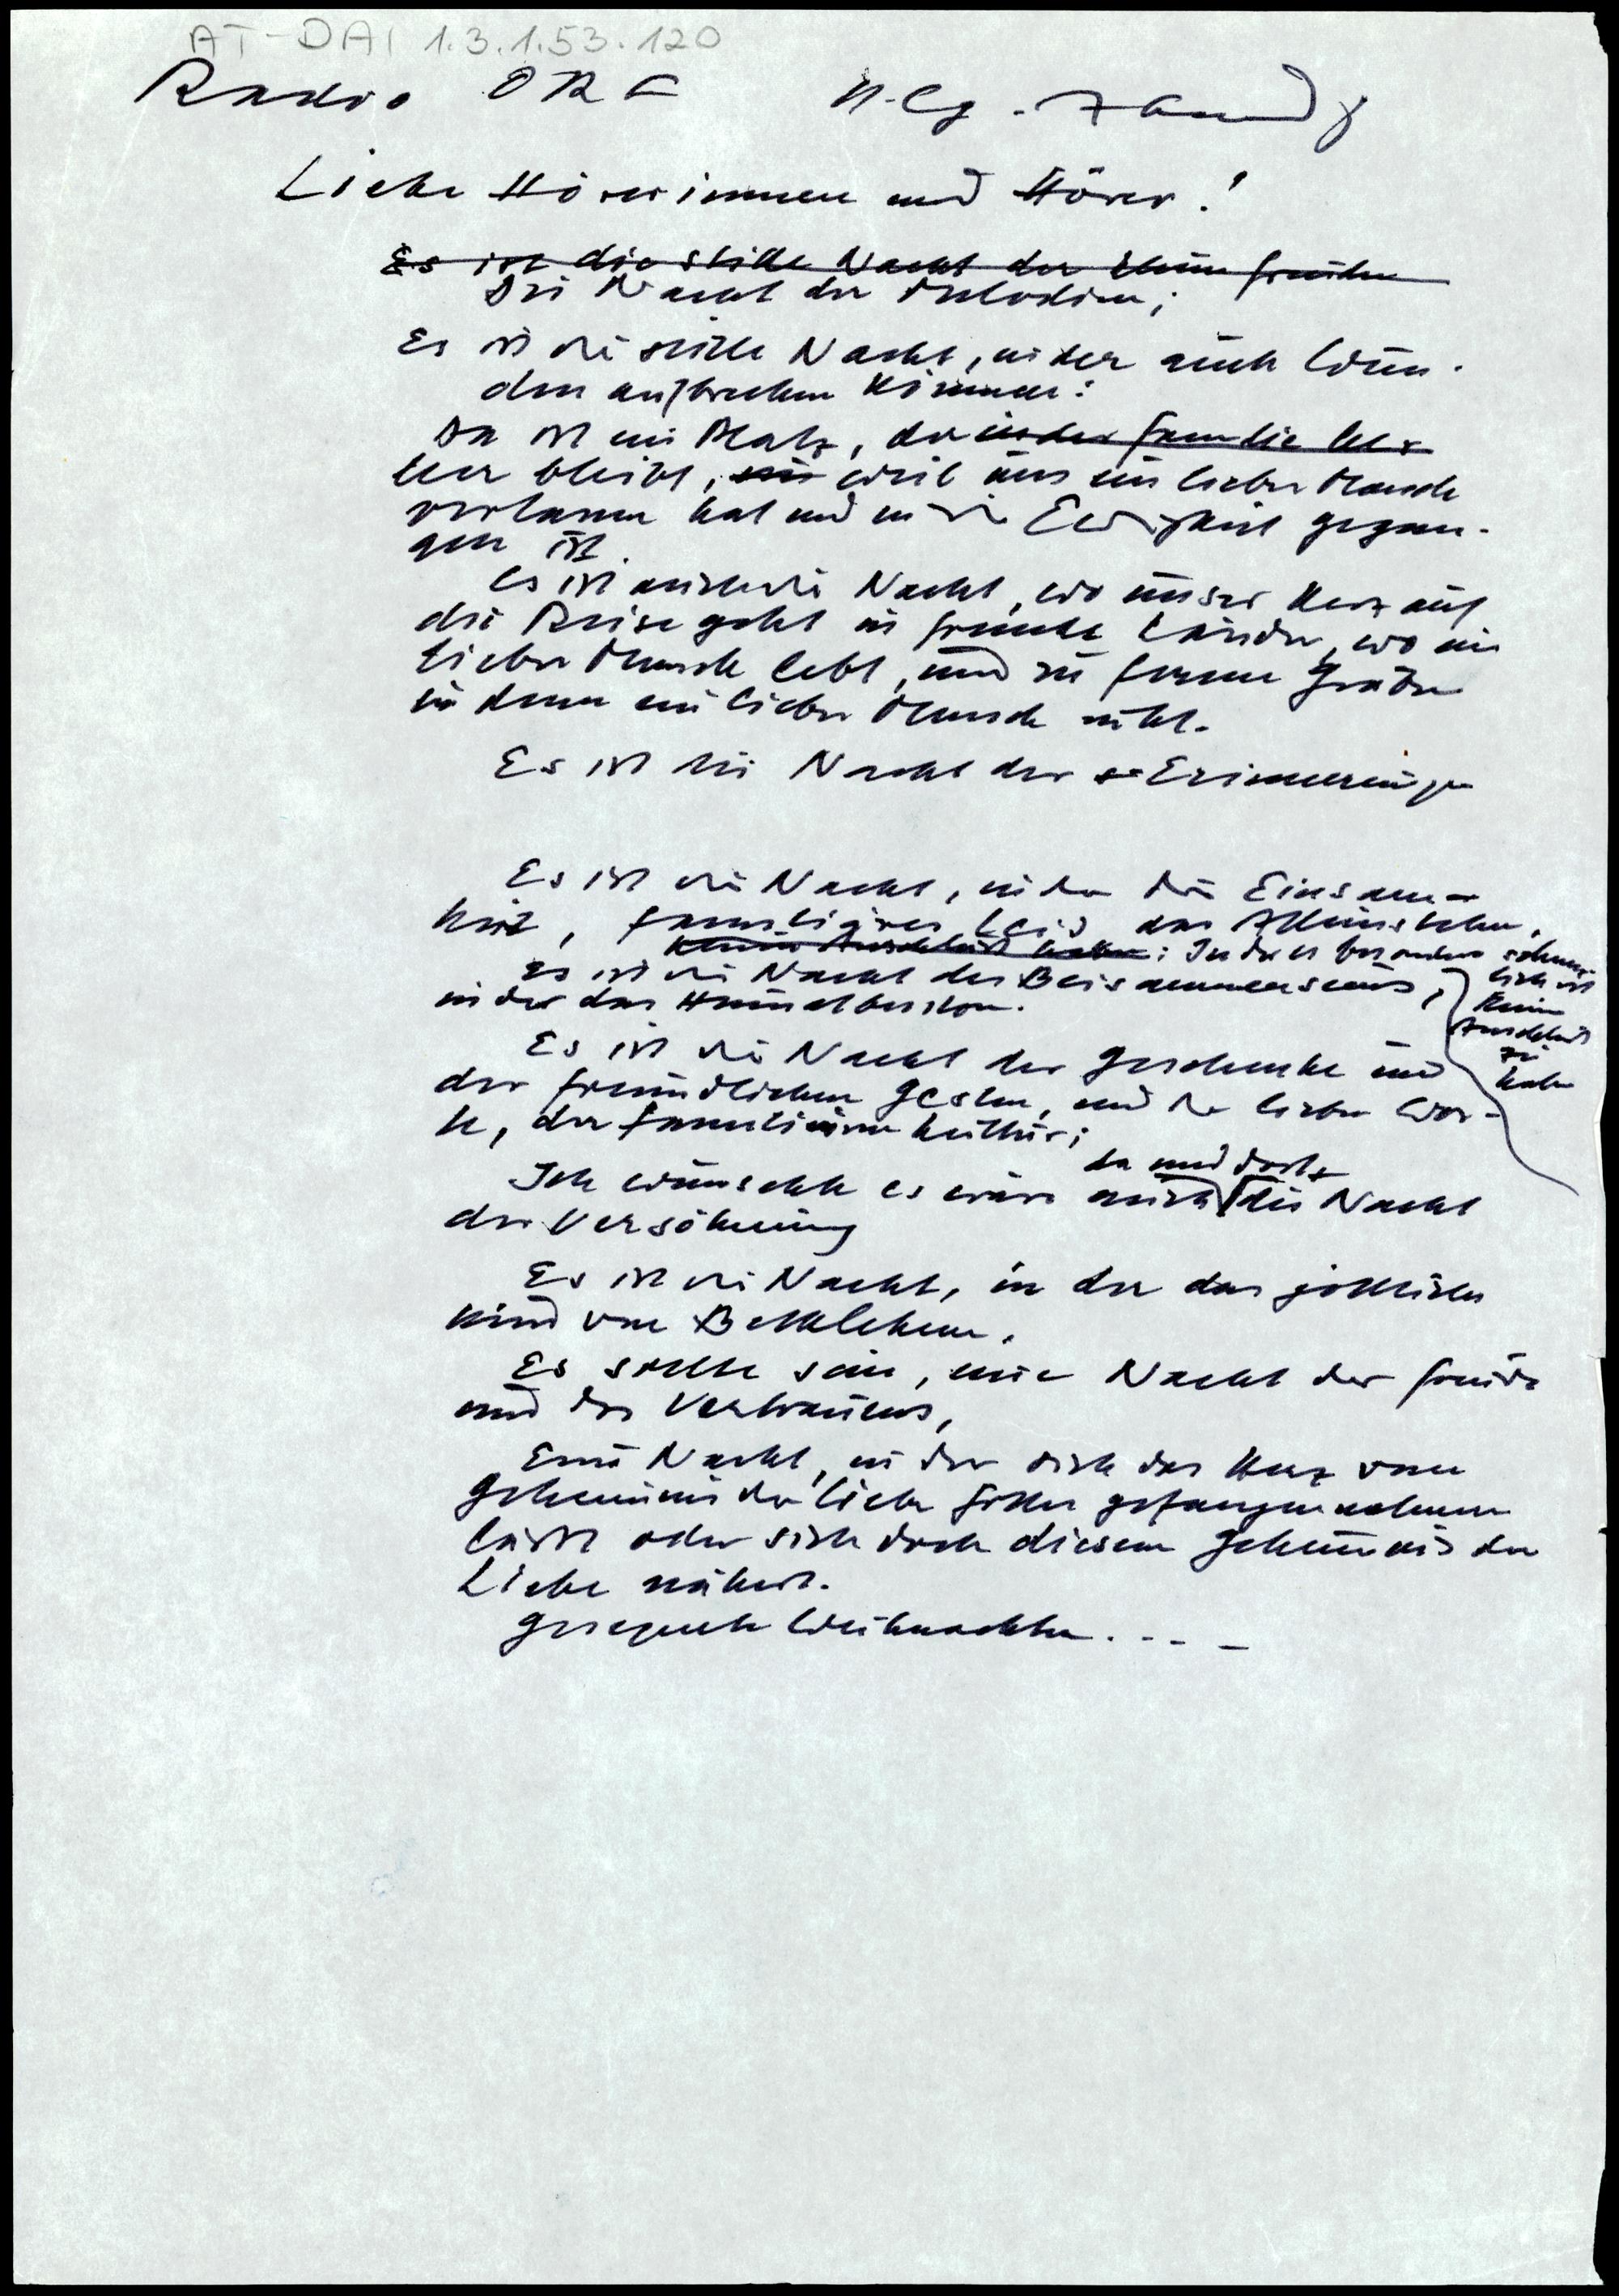 AT-DAI 1.3.1.53.120
Radio ORF Hlg. Abend
Liebe Hörerinnen und Hörer!
Es ist die stille Nacht der
Die Nacht der Melodien;
Es ist die stille Nacht, in der auch Wun-
den aufbrechen können:
Da ist ein Platz, der in der Familie leer
leer bleibt, weil uns ein lieber Mensch
verlassen hat und in die Ewigkeit gegan-
gen ist.
Es ist auch die Nacht, wo unser Herz auf
die Reise geht in fremde Länder, wo ein
lieber Mensch lebt, und zu fernen Gräbern
in denen ein lieber Mensch ruht.
Es ist die Nacht der Erinnerungen
Es ist die Nacht, in der die Einsam-
keit, familiäres Leid, das Alleinstehen,
keinen Anschluß haben; In der es besonders schmerz-
lich ist
keinen
Anschluß
zu
haben
Es ist die Nacht des Beisammenseins,
in der das
Es ist die Nacht der Geschenke und
der freundlichen Gesten, und der lieben Wor-
te, der familiären Kultur;
da und dort
Ich wünschte es wäre auch die Nacht
der Versöhnung
Es ist die Nacht, in der das göttliche
Kind von Bethlehem.
Es sollte sein, eine Nacht der Freude
und des Vertrauens,
Eine Nacht, in der sich das Herz vom
Geheimnis der Liebe Gottes gefangennehmen
läßt oder sich doch diesem Geheimnis der
Liebe nähert.
Gesegnete Weihnachten....